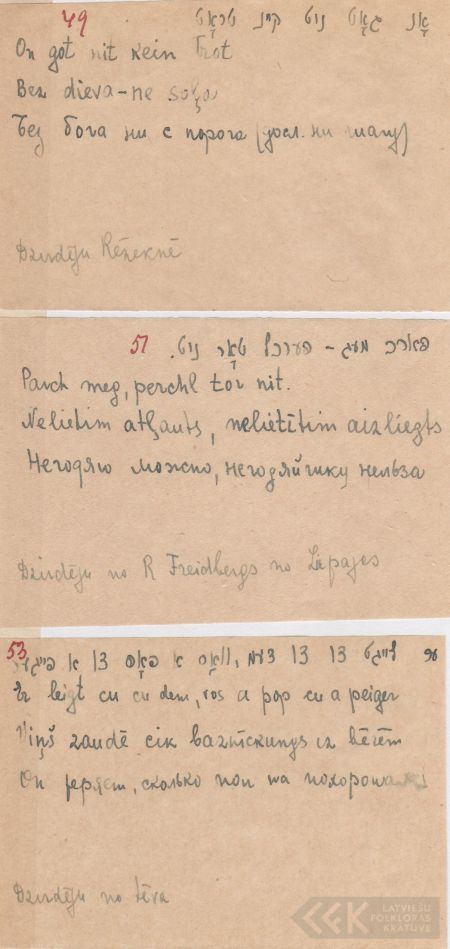 49
אָן גאָט ניט קיין טראָט
On got nit kein trot
Bez dieva - ne soļa
Без бога ни с порога (досл. ни шагу)
Dzirdēju Rēzeknē
51
פארך מעג - פערכל טאָר ניט.
Parch meg, perchl tor nit.
Nelietim atļauts, nelietītim aizliegts
Негодяю можно, негодяйчику нельза
Dzirdēju no R Freidbergs no Liepajas
53
ער לייגט צו צו דעם, וואָס א פּאָפּ צו א פּייגער
Er leigt cu cu dem, vos a pop cu a peiger
Viņš zaudē cik baznīckungs iz bērēm
Он теряет, сколько поп на
Dzirdēju no tēva
LATVIEŠU
FOLKLORAS
KRĀTUVE